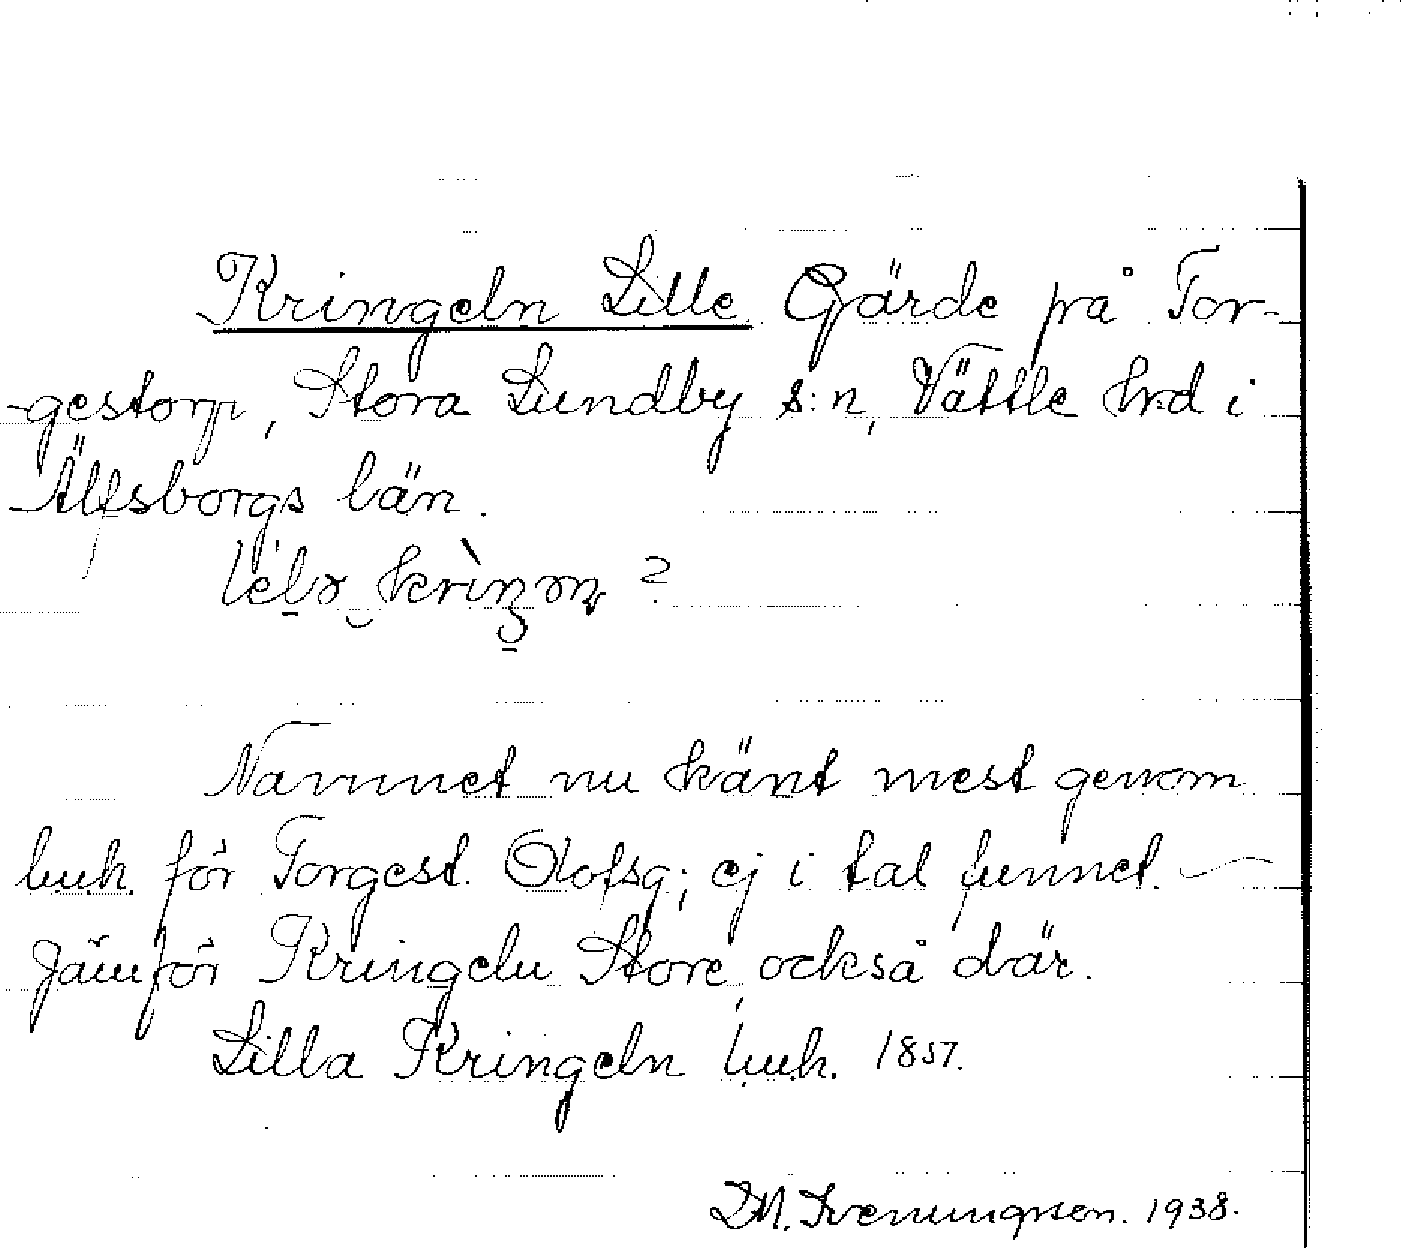 Kringeln Lille Gärde på Tor-
-gestorp, Stora Lundby s:n, Vättle hrd i
Älfsborgs län.
Namnet nu känt mest genom
luh. för Torgest. Olofsg; ej i tal funnet. –
Jämför Kringeln Store, också där.
Lilla Kringeln luh. 1857.
D.M. Svenungsson. 1938.